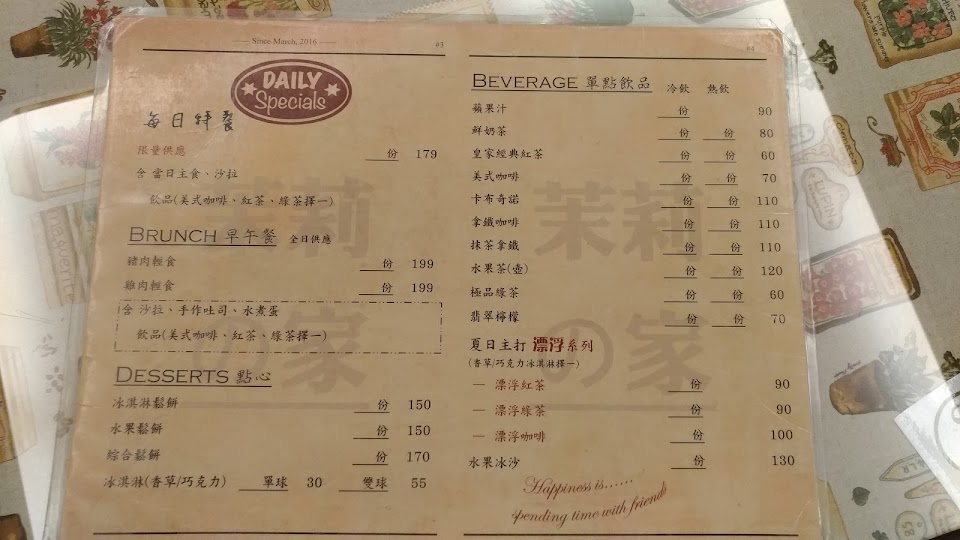 Since March, 2016
#3
DAILY
Specials
每日特餐
限量供應 份 179
含 當日主食、沙拉
飲品(美式咖啡、紅茶、綠茶擇一)
BRUNCH 早午餐 全日供應
豬肉輕食 份 199
雞肉輕食 份 199
含 沙拉、手作吐司、水煮蛋
飲品(美式咖啡、紅茶、綠茶擇一)
DESSERTS 點心
冰淇淋鬆餅 份 150
水果鬆餅 份 150
綜合鬆餅 份 170
冰淇淋(香草/巧克力) 單球 30 雙球 55
#4
BEVERAGE 單點飲品 冷飲 熱飲
蘋果汁 份 90
鮮奶茶 份 份 80
皇家經典紅茶 份 份 60
美式咖啡 份 份 70
卡布奇諾 份 份 110
拿鐵咖啡 份 份 110
抹茶拿鐵 份 份 110
水果茶(壺) 份 份 120
極品綠茶 份 份 60
翡翠檸檬 份 份 70
夏日主打 漂浮系列
(香草/巧克力冰淇淋擇一)
— 漂浮紅茶 份 90
— 漂浮綠茶 份 90
— 漂浮咖啡 份 100
水果冰沙 份 130
Happiness is......
spending time with friends
茉莉
の家
茉莉
の家
LUPIN